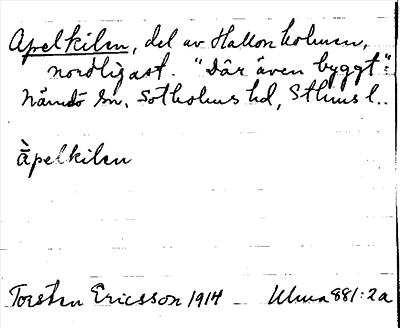 Apelkilen, del av Hallonholmen,
nordligast. "Där även byggt":
Nämdö sn, Sotholms hd, Sthms l..
ȁpelkilen
Torsten Ericsson 1914 Ulma 881:2a